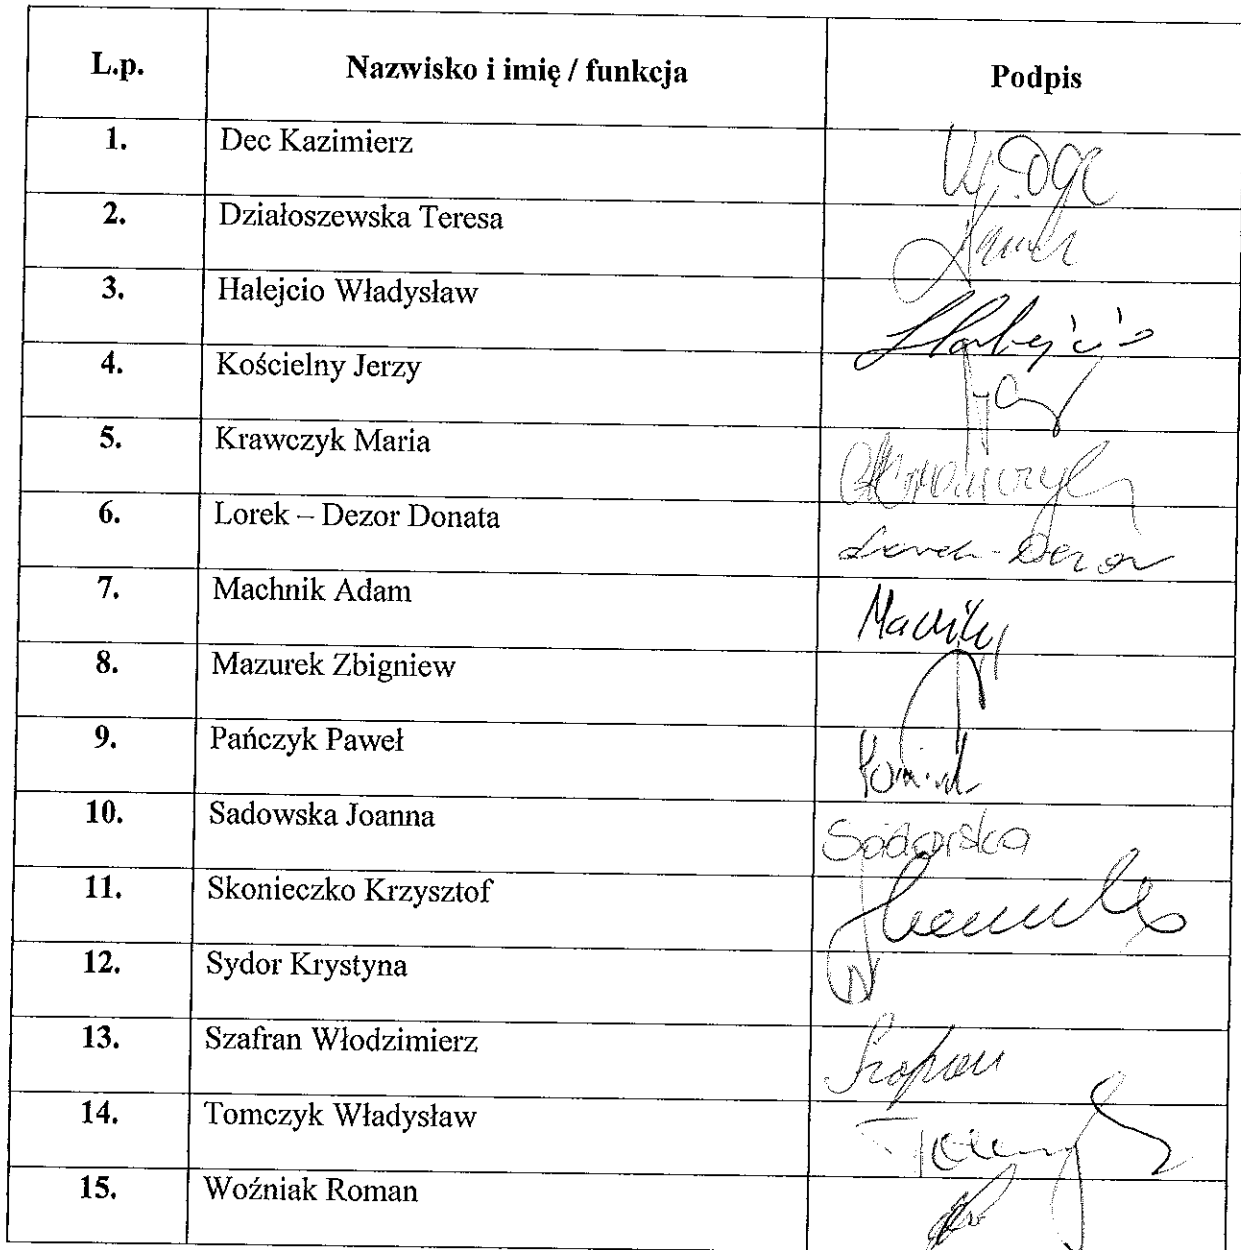 L.p. Nazwisko i imię / funkcja Podpis
1. Dec Kazimierz
2. Działoszewska Teresa
3. Halejcio Władysław Halejcio
4. Kościelny Jerzy
5. Krawczyk Maria Krawczyk
6. Lorek – Dezor Donata Lorek-Dezor
7. Machnik Adam Machnik
8. Mazurek Zbigniew
9. Pańczyk Paweł
10. Sadowska Joanna Sadowska
11. Skonieczko Krzysztof
12. Sydor Krystyna
13. Szafran Włodzimierz Szafran
14. Tomczyk Władysław
15. Woźniak Roman